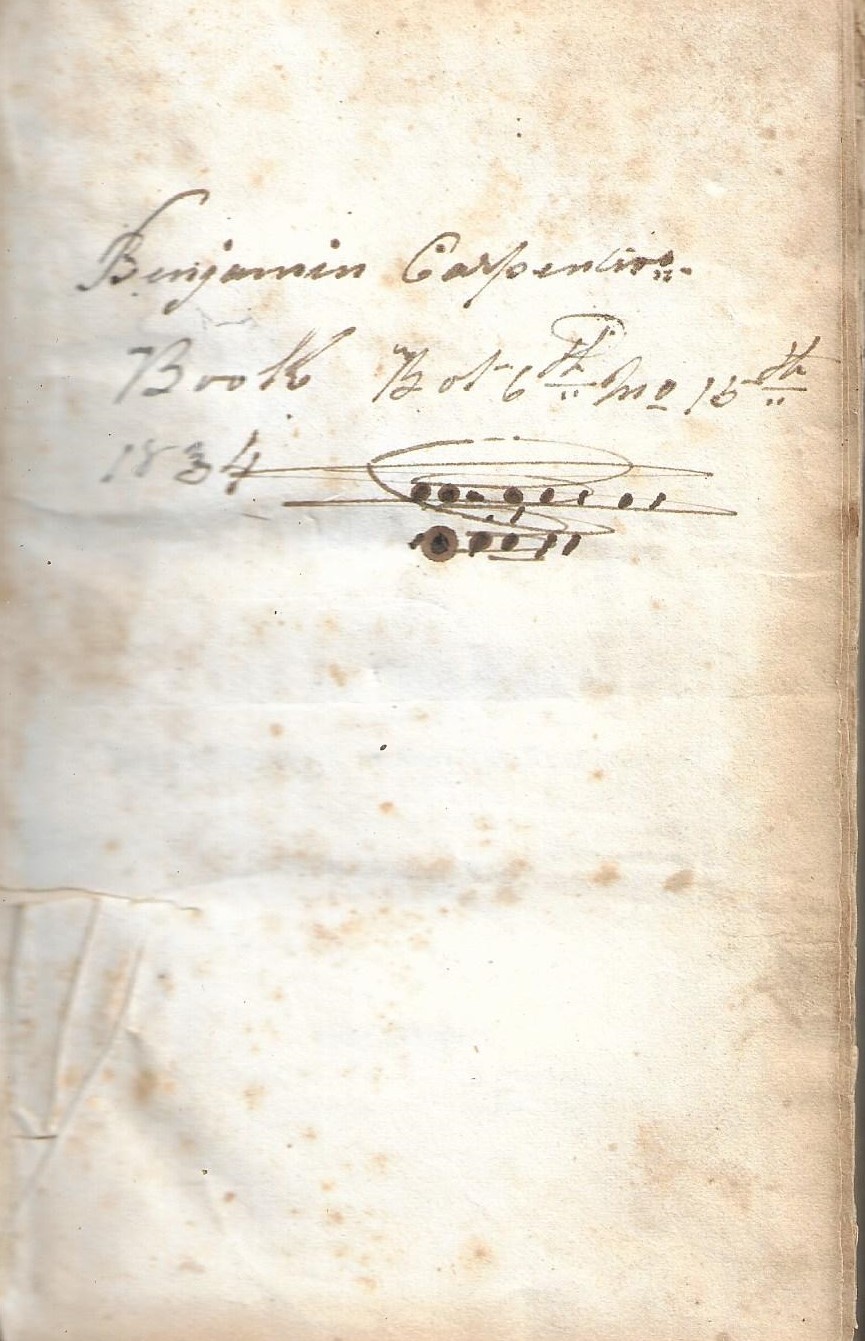 Benjamin Carpenters
Book Bot 6th Mo 15th
1834